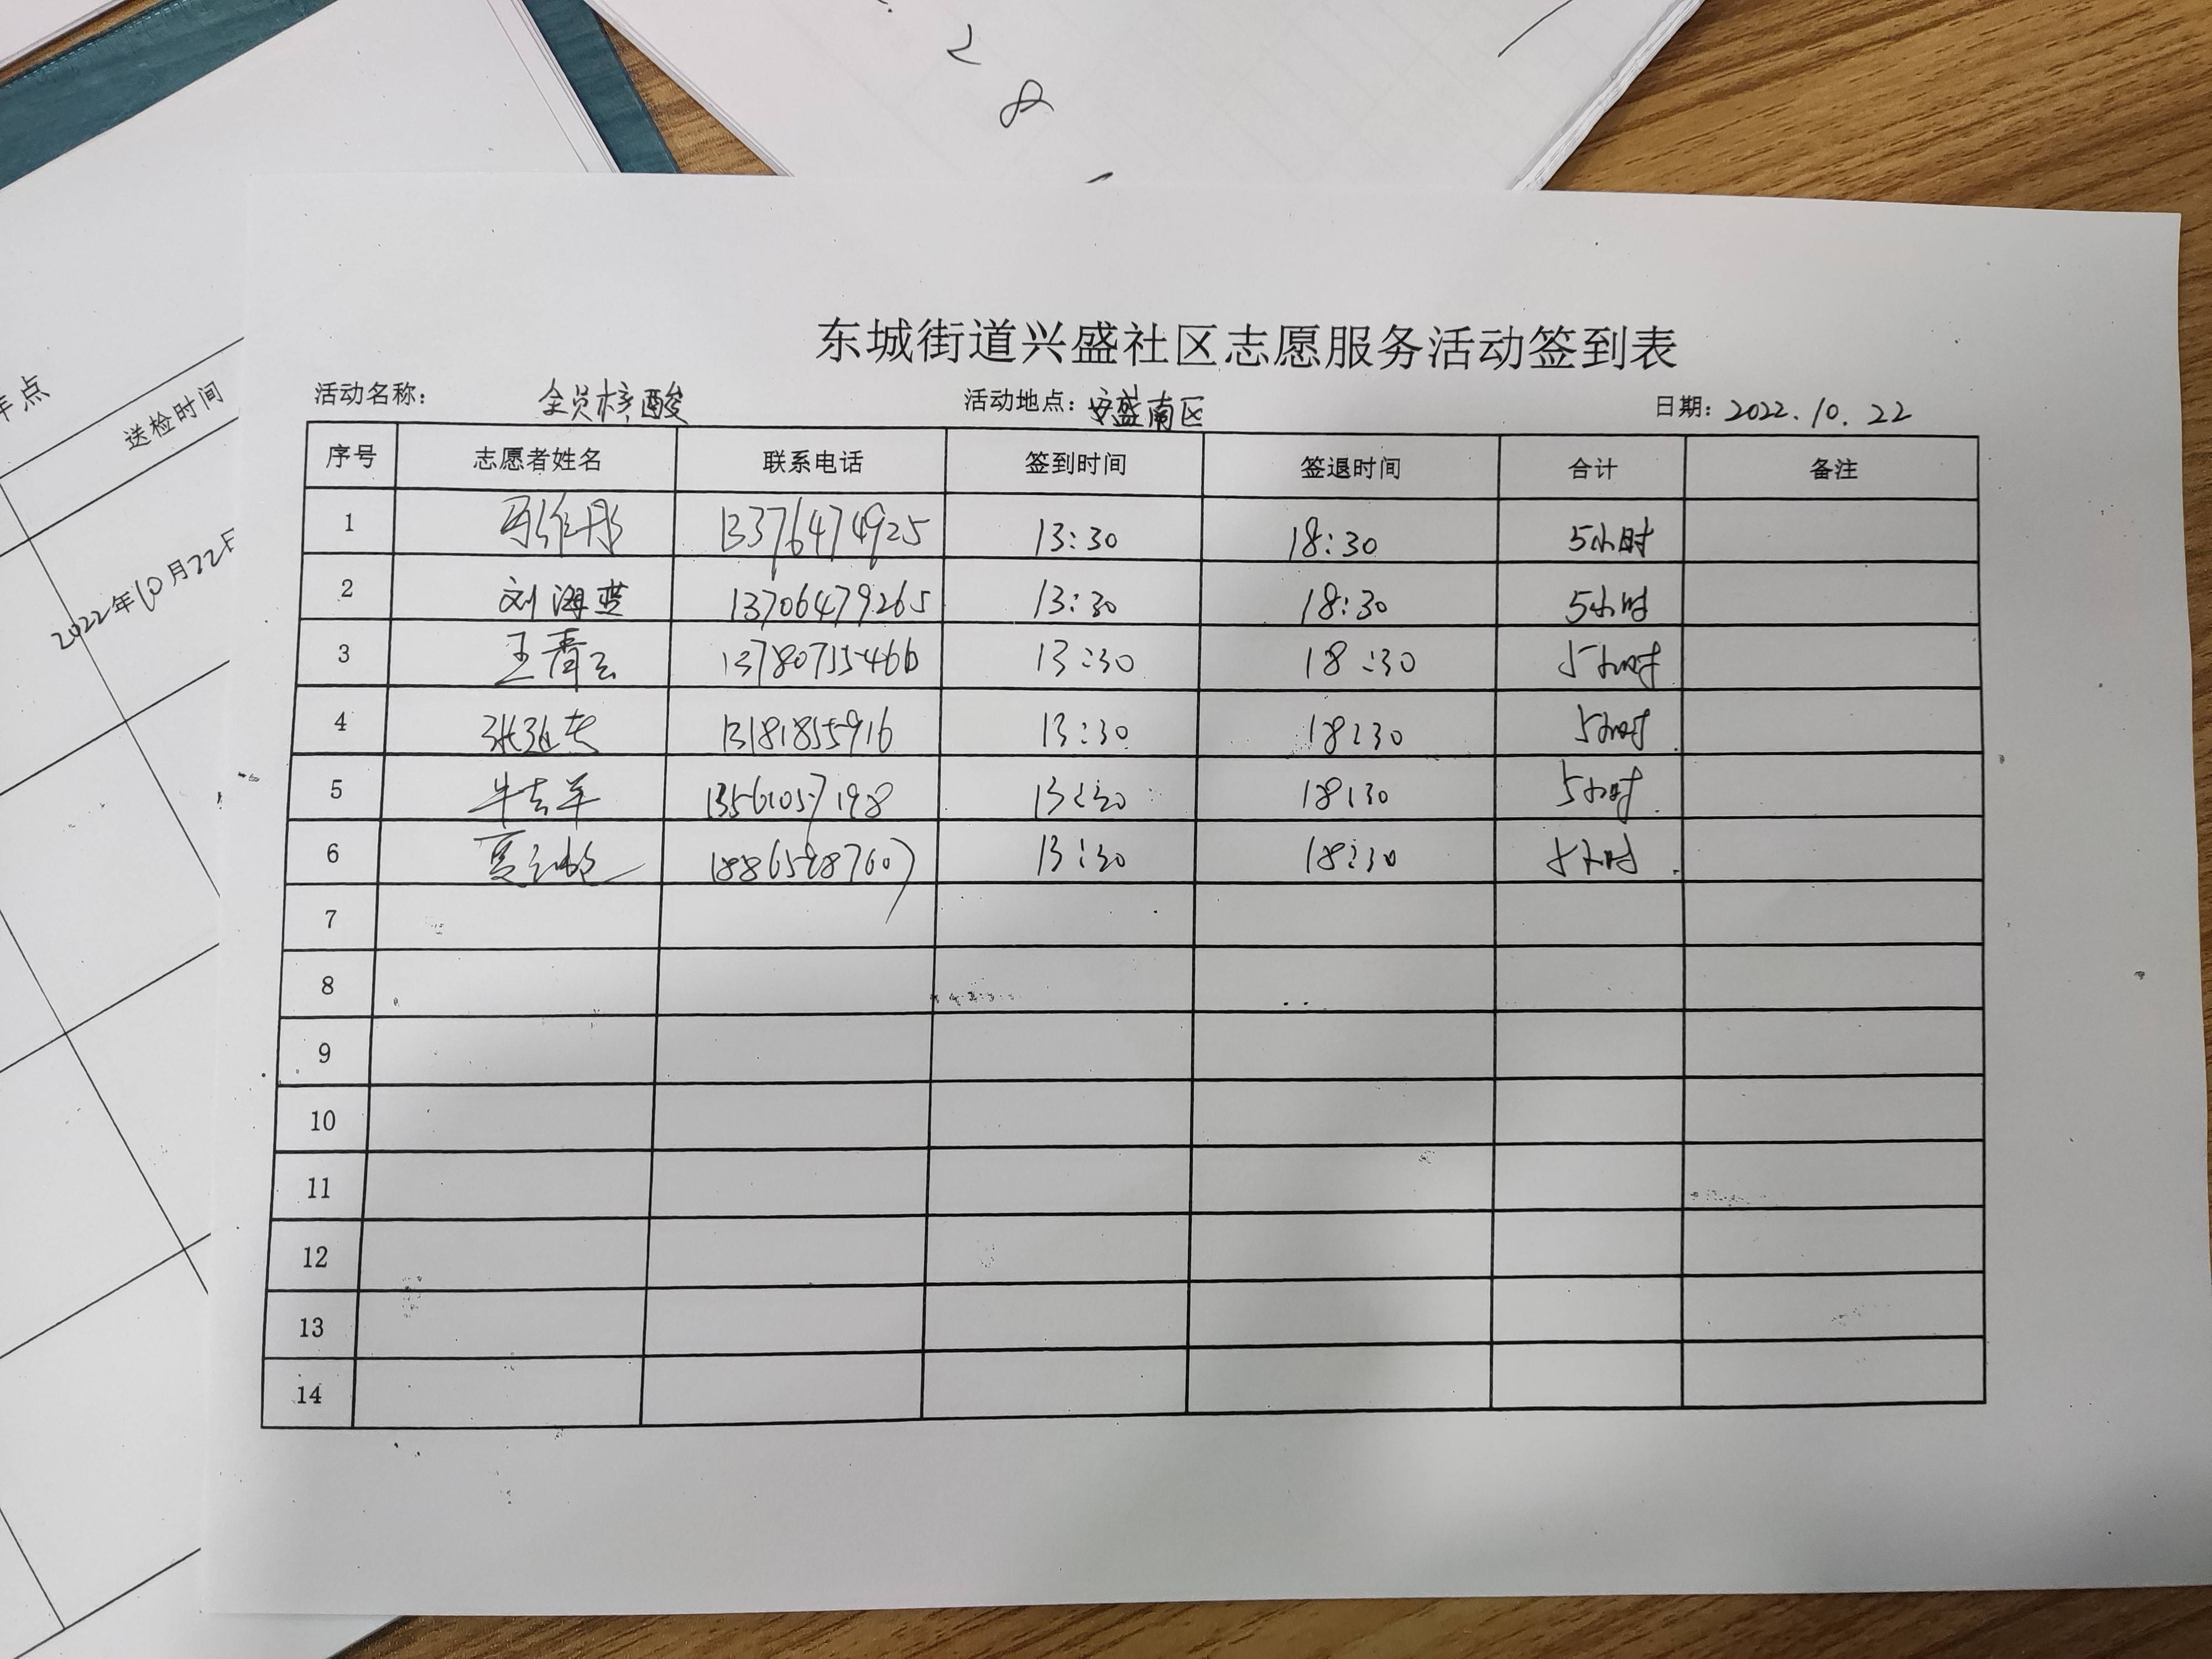 2
8
年点
送检时间
2022年10月22日
东城街道兴盛社区志愿服务活动签到表
活动名称： 全员核酸 活动地点：安盛南区 日期：2022.10.22
序号 志愿者姓名 联系电话 签到时间 签退时间 合计 备注
1 13376474925 13:30 18:30 5小时
2 刘海燕 13706479265 13:30 18:30 5小时
3 王春云 13780755466 13:30 18:30 5小时
4 13181855916 13:30 18:30 5小时
5 13561057198 13:30 18:30 5小时
6 13:30 18:30 5小时
7
8
9
10
11
12
13
14